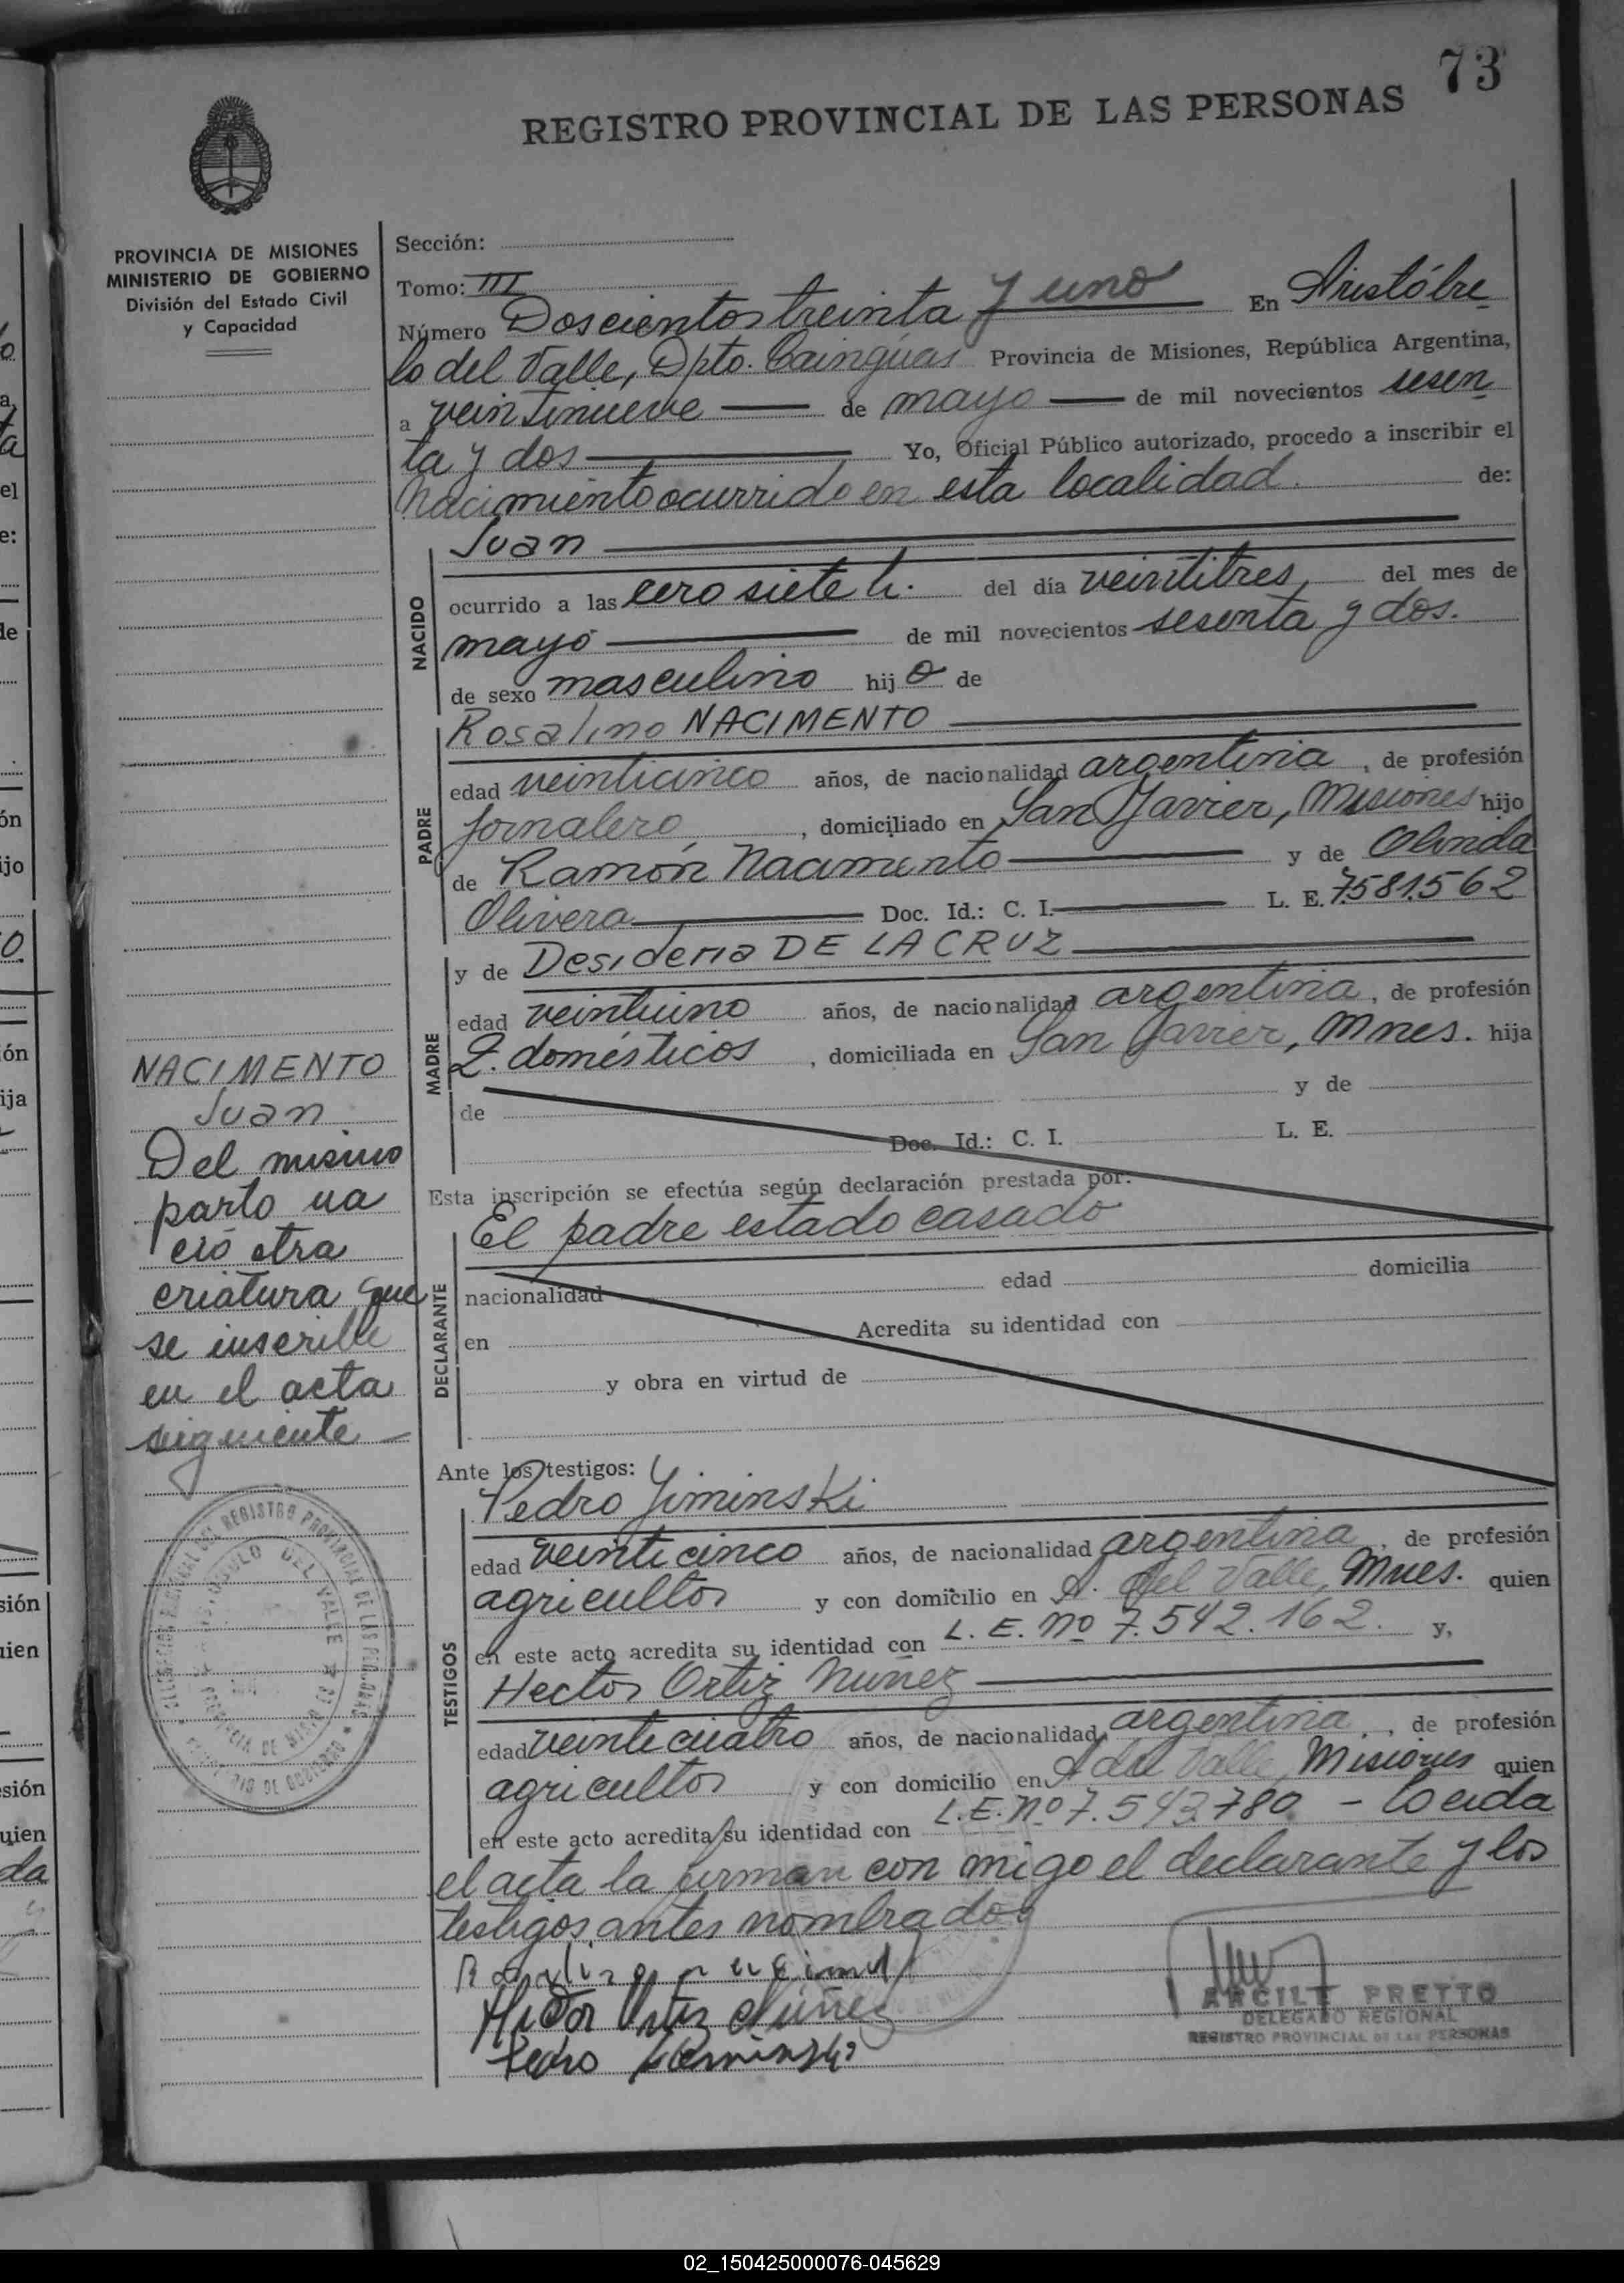 73
REGISTRO PROVINCIAL DE LAS PERSONAS
PROVINCIA DE MISIONES
MINISTERIO DE GOBIERNO
División del Estado Civil
y Capacidad
Sección:
Tomo: III
Número Doscientos treinta y uno En Aristóbu
lo del Valle, Dpto. Cainguas Provincia de Misiones, República Argentina,
a veintinueve de mayo de mil novecientos sesen
ta y dos Yo, Oficial Público autorizado, procedo a inscribir el
Nacimiento ocurrido en esta localidad. de:
NACIDO
Juan
ocurrido a las cero siete h. del día veintitres, del mes de
mayo de mil novecientos sesenta y dos.
de sexo masculino hij o de
PADRE
Rosalino NACIMENTO
edad veinticinco años, de nacionalidad argentina, de profesión
jornalero, domiciliado en San Javier, Misiones hijo
de Ramón Nacimento y de Olinda
Olivera Doc. Id.: C. I. L. E. 7.581.562
MADRE
y de Desideria DE LA CRUZ
edad veintiuno años, de nacionalidad argentina, de profesión
Q. domésticos, domiciliada en San Javier, Mnes. hija
de y de
Doc. Id.: C. I. L. E.
Esta inscripción se efectúa según declaración prestada por:
DECLARANTE
El padre estado casado
nacionalidad edad domicilia
en Acredita su identidad con
y obra en virtud de
Ante los testigos:
TESTIGOS
Pedro Yiminski
edad veinticinco años, de nacionalidad argentina, de profesión
agricultor y con domicilio en A. del Valle, Mnes. quien
en este acto acredita su identidad con L. E. nº 7.542.162. y,
Hector Ortiz Nuñez
edad veinticuatro años, de nacionalidad argentina, de profesión
agricultor y con domicilio en A del Valle, Misiones quien
en este acto acredita su identidad con L.E. nº 7.543.780 - Leida
el acta la firman con migo el declarante y los
testigos antes nombrados
Hector Ortiz Nuñez
Pedro
ARCILE PRETTO
DELEGADO REGIONAL
REGISTRO PROVINCIAL DE LAS PERSONAS
NACIMENTO
Juan
Del mismo
parto na
ció otra
criatura que
se inscribe
en el acta
siguiente
DEL REGISTRO PROVINCIAL DE LAS PERSONAS
DEL VALLE
02_150425000076-045629